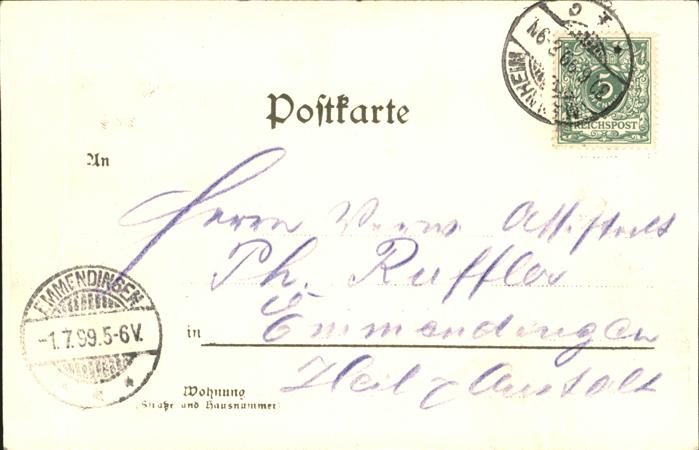 Postkarte
MANNHEIM
5
REICHSPOST
An
Herrn Verw. Assistent
Ph. Ruffler
in Emmendingen
Heil & Anstalt
Wohnung
(Straße und Hausnummer)
EMMENDINGEN
-1.7.99.5-6V.